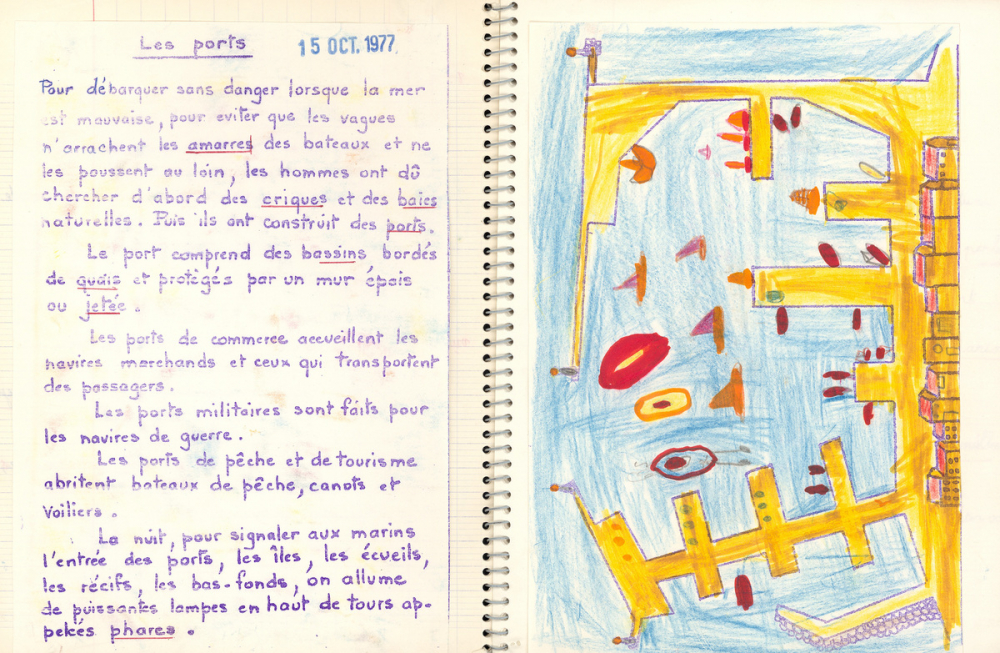 Les ports
15 OCT. 1977
Pour débarquer sans danger lorsque la mer
est mauvaise, pour eviter que les vagues
n'arrachent les amarres des bateaux et ne
les poussent au loin, les hommes ont dû
chercher d'abord des criques et des baies
naturelles. Puis ils ont construit des ports.
Le port comprend des bassins bordés
de quais et protégés par un mur épais
ou jetée.
Les ports de commerce accueillent les
navires marchands et ceux qui transportent
des passagers.
Les ports militaires sont faits pour
les navires de guerre.
Les ports de pêche et de tourisme
abritent bateaux de pêche, canots et
voiliers.
La nuit, pour signaler aux marins
l'entrée des ports, les îles, les écueils,
les récifs, les bas-fonds, on allume
de puissantes lampes en haut de tours ap-
pelées phares.